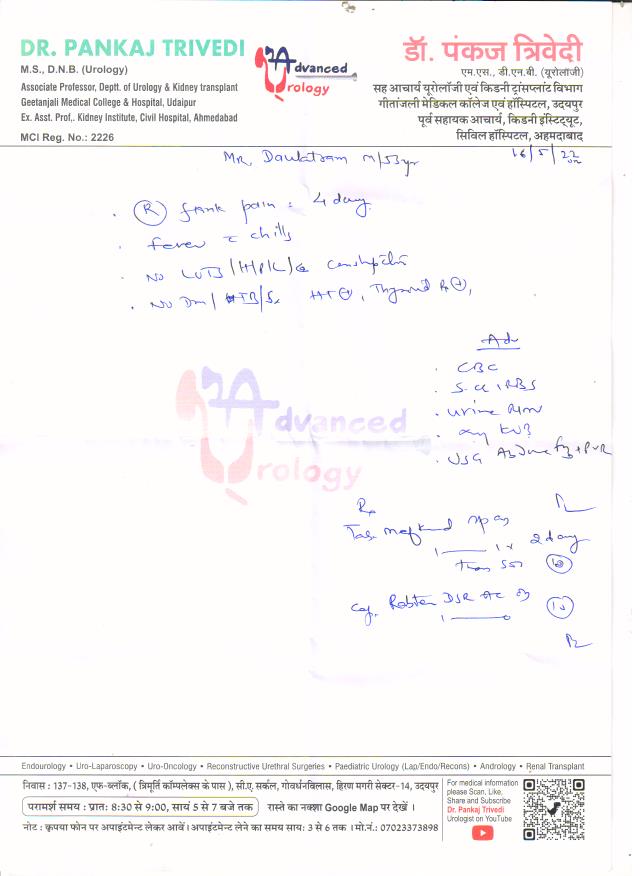 DR. PANKAJ TRIVEDI
M.S., D.N.B. (Urology)
Associate Professor, Deptt. of Urology & Kidney transplant
Geetanjali Medical College & Hospital, Udaipur
Ex. Asst. Prof.. Kidney Institute, Civil Hospital, Ahmedabad
MCI Reg. No.: 2226
Advanced
Urology
डॉ. पंकज त्रिवेदी
एम.एस., डी.एन.बी. (यूरोलॉजी)
सह आचार्य यूरोलॉजी एवं किडनी ट्रांसप्लांट विभाग
गीतांजली मेडिकल कॉलेज एवं हॉस्पिटल, उदयपुर
पूर्व सहायक आचार्य, किडनी इंस्टिट्यूट,
सिविल हॉस्पिटल, अहमदाबाद
Mr. Daulatram M/53yr
16/5/22
R flank pain : 4 day
fever c chills
No LUTS/H/P/L/ constipation
No Dm/ TB/Sx HT +, Thyroid +,
Adv
CBC
S. cr, RBS
urine R/M
Xray KUB
USG Abdomen + PVR
Advanced
Urology
Rx
Tab. Meftal spas
1 — 1 x 2 day
then SOS 10
Cap. DSR AC 10
1 — 0
Endourology • Uro-Laparoscopy • Uro-Oncology • Reconstructive Urethral Surgeries • Paediatric Urology (Lap/Endo/Recons) • Andrology • Renal Transplant
निवास : 137-138, एफ-ब्लॉक, ( त्रिमूर्ति कॉम्पलेक्स के पास ), सी.ए. सर्कल, गोवर्धनविलास, हिरण मगरी सेक्टर-14, उदयपुर
परामर्श समय : प्रातः 8:30 से 9:00, सायं 5 से 7 बजे तक रास्ते का नक्शा Google Map पर देखें ।
नोट : कृपया फोन पर अपाइंटमेन्ट लेकर आवें। अपाइंटमेन्ट लेने का समय सायः 3 से 6 तक । मो.नं.: 07023373898
For medical information
please Scan, Like,
Share and Subscribe
Dr. Pankaj Trivedi
Urologist on YouTube